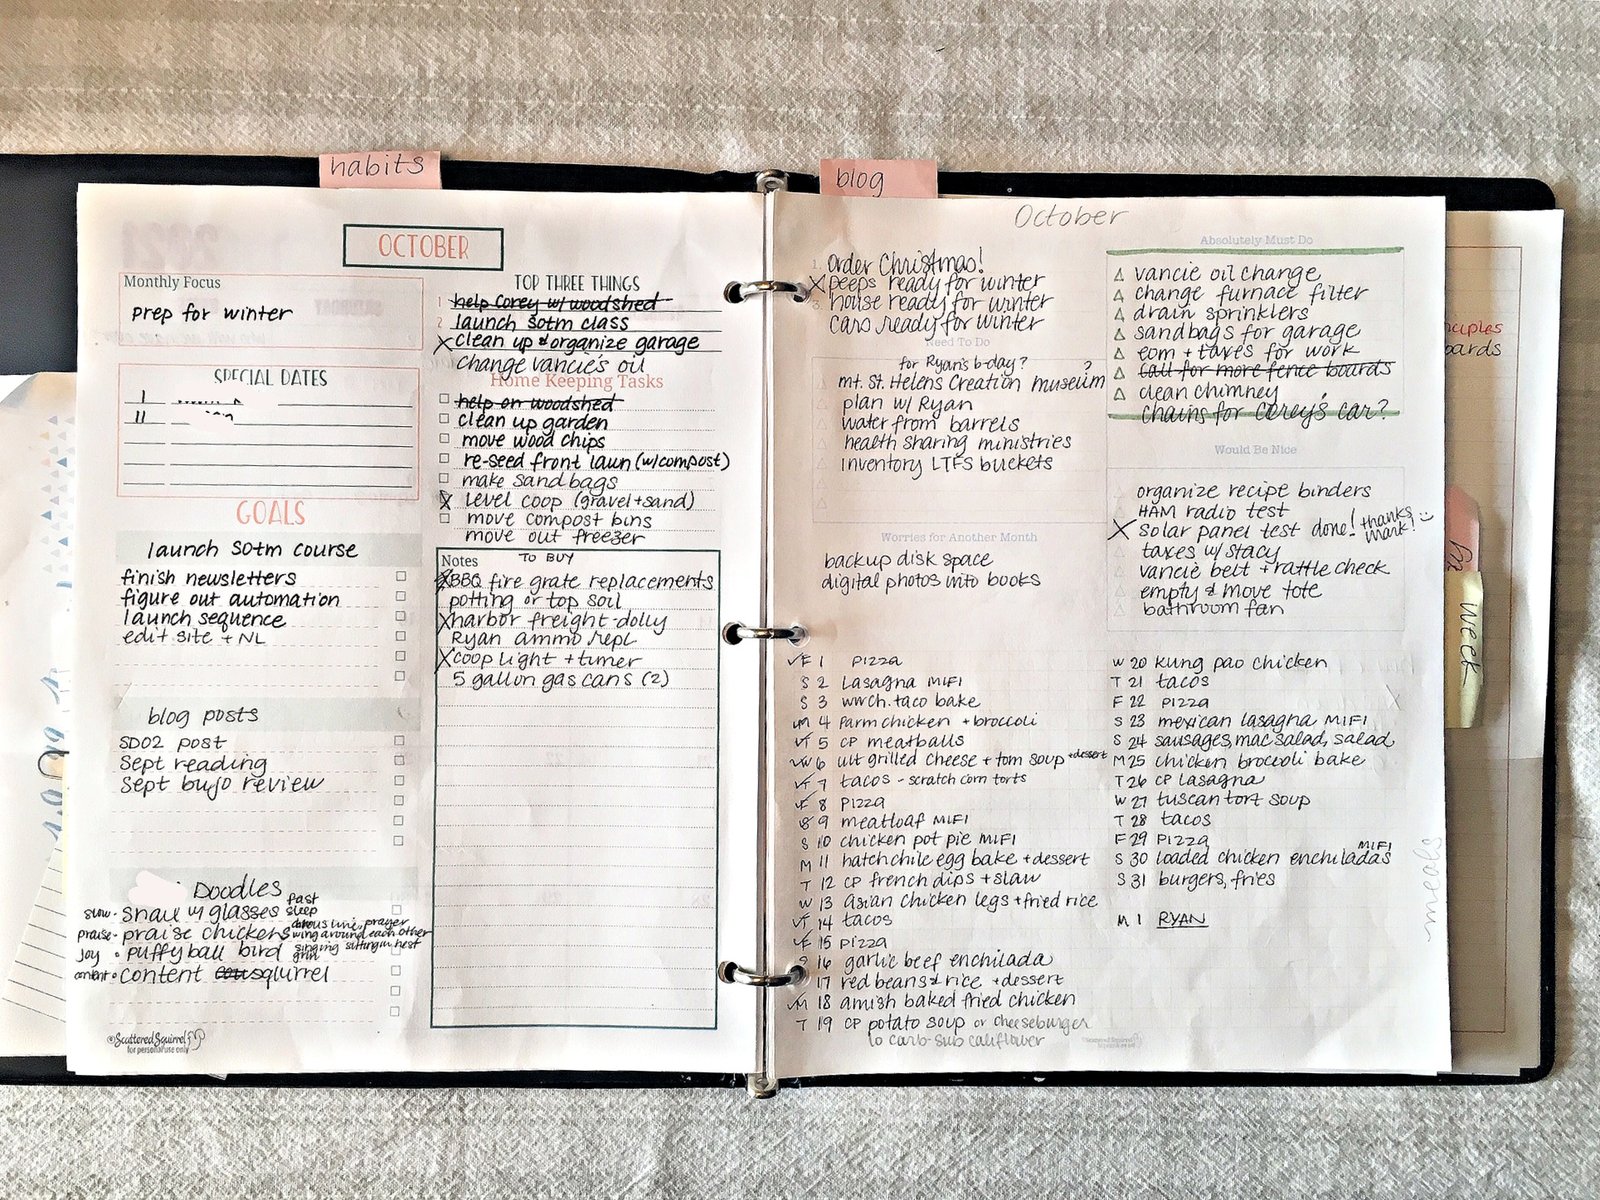 habits
OCTOBER
Monthly Focus
prep for winter
SPECIAL DATES
1
11
GOALS
launch SOTM course
finish newsletters
figure out automation
launch sequence
edit site + NL
blog posts
SD02 post
Sept reading
Sept bujo review
Doodles
slow · snail w/ glasses fast sleep
praise · praise chickens line, prayer wing around each other
joy · puffy ball bird singing sitting in nest grin
content · content squirrel
©ScatteredSquirrel
for personal use only
TOP THREE THINGS
1 help Corey w/ woodshed
2 launch SOTM class
clean up & organize garage
change vancie's oil
Home Keeping Tasks
help on woodshed
clean up garden
move wood chips
re-seed front lawn (w/compost)
make sandbags
level coop (gravel+sand)
move compost bins
move out freezer
Notes TO BUY
BBQ fire grate replacements
potting or top soil
harbor freight-dolly
Ryan ammo repl
coop light + timer
5 gallon gas cans (2)
blog
October
1. order Christmas!
peeps ready for winter
3. house ready for winter
cars ready for winter
Need To Do
for Ryan's b-day?
mt. St. Helens Creation museum?
plan w/ Ryan
water from barrels
health sharing ministries
inventory LTFS buckets
Worries for Another Month
backup disk space
digital photos into books
Absolutely Must Do
vancie oil change
change furnace filter
drain sprinklers
sandbags for garage
eom + taxes for work
call for more fence boards
clean chimney
chains for Corey's car?
Would Be Nice
organize recipe binders
HAM radio test
solar panel test done! thanks Mark!
taxes w/ Stacy
vancie belt + rattle check
empty & move tote
bathroom fan
F 1 PIZZA
S 2 Lasagna MIFI
S 3 wwch. taco bake
M 4 Parm chicken + broccoli
T 5 CP meatballs
W 6 ult grilled cheese + tom soup + dessert
T 7 tacos - scratch corn torts
F 8 PIZZA
S 9 meatloaf MIFI
S 10 chicken pot pie MIFI
M 11 hatch chile egg bake + dessert
T 12 CP french dips + slaw
W 13 asian chicken legs + fried rice
T 14 tacos
F 15 pizza
S 16 garlic beef enchilada
17 red beans & rice + dessert
M 18 amish baked fried chicken
T 19 CP potato soup or cheeseburger
lo carb-sub califlower
W 20 kung pao chicken
T 21 tacos
F 22 PIZZA
S 23 mexican lasagna MIFI
S 24 sausages, mac salad, salad
M 25 chicken broccoli bake
T 26 CP lasagna
W 27 tuscan tort soup
T 28 tacos
F 29 PIZZA
S 30 loaded chicken enchiladas MIFI
S 31 burgers, fries
M 1 RYAN
meals
boards
week